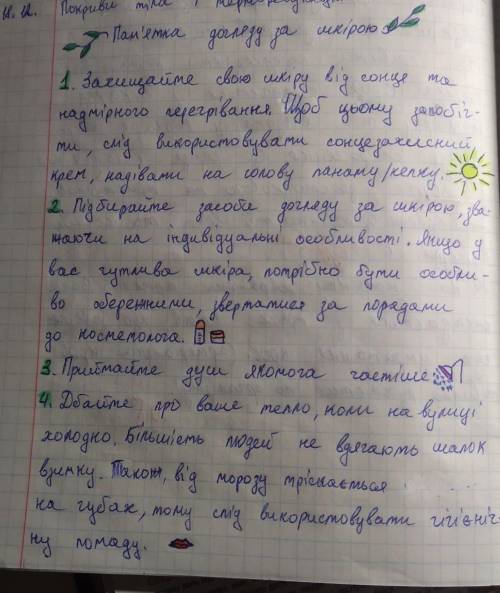 Покриви тіла і терморегуляція
Пам'ятка догляду за шкірою
1. Захищайте свою шкіру від сонця та
надмірного перегрівання. Щоб цьому запобіг-
ти, слід використовувати сонцезахисний
крем, надівати на голову панаму/кепку.
2. Підбирайте засоби догляду за шкірою, зва-
жаючи на індивідуальні особливості. Якщо у
вас чутлива шкіра, потрібно бути особли-
во обережними, звертатися за порадами
до косметолога.
3. Приймайте душ якомога частіше
4. Дбайте про ваше тепло, коли на вулиці
холодно. Більшість людей не вдягають шапок
взимку. Також, від морозу тріскається
на губах, тому слід використовувати гігієніч-
ну помаду.